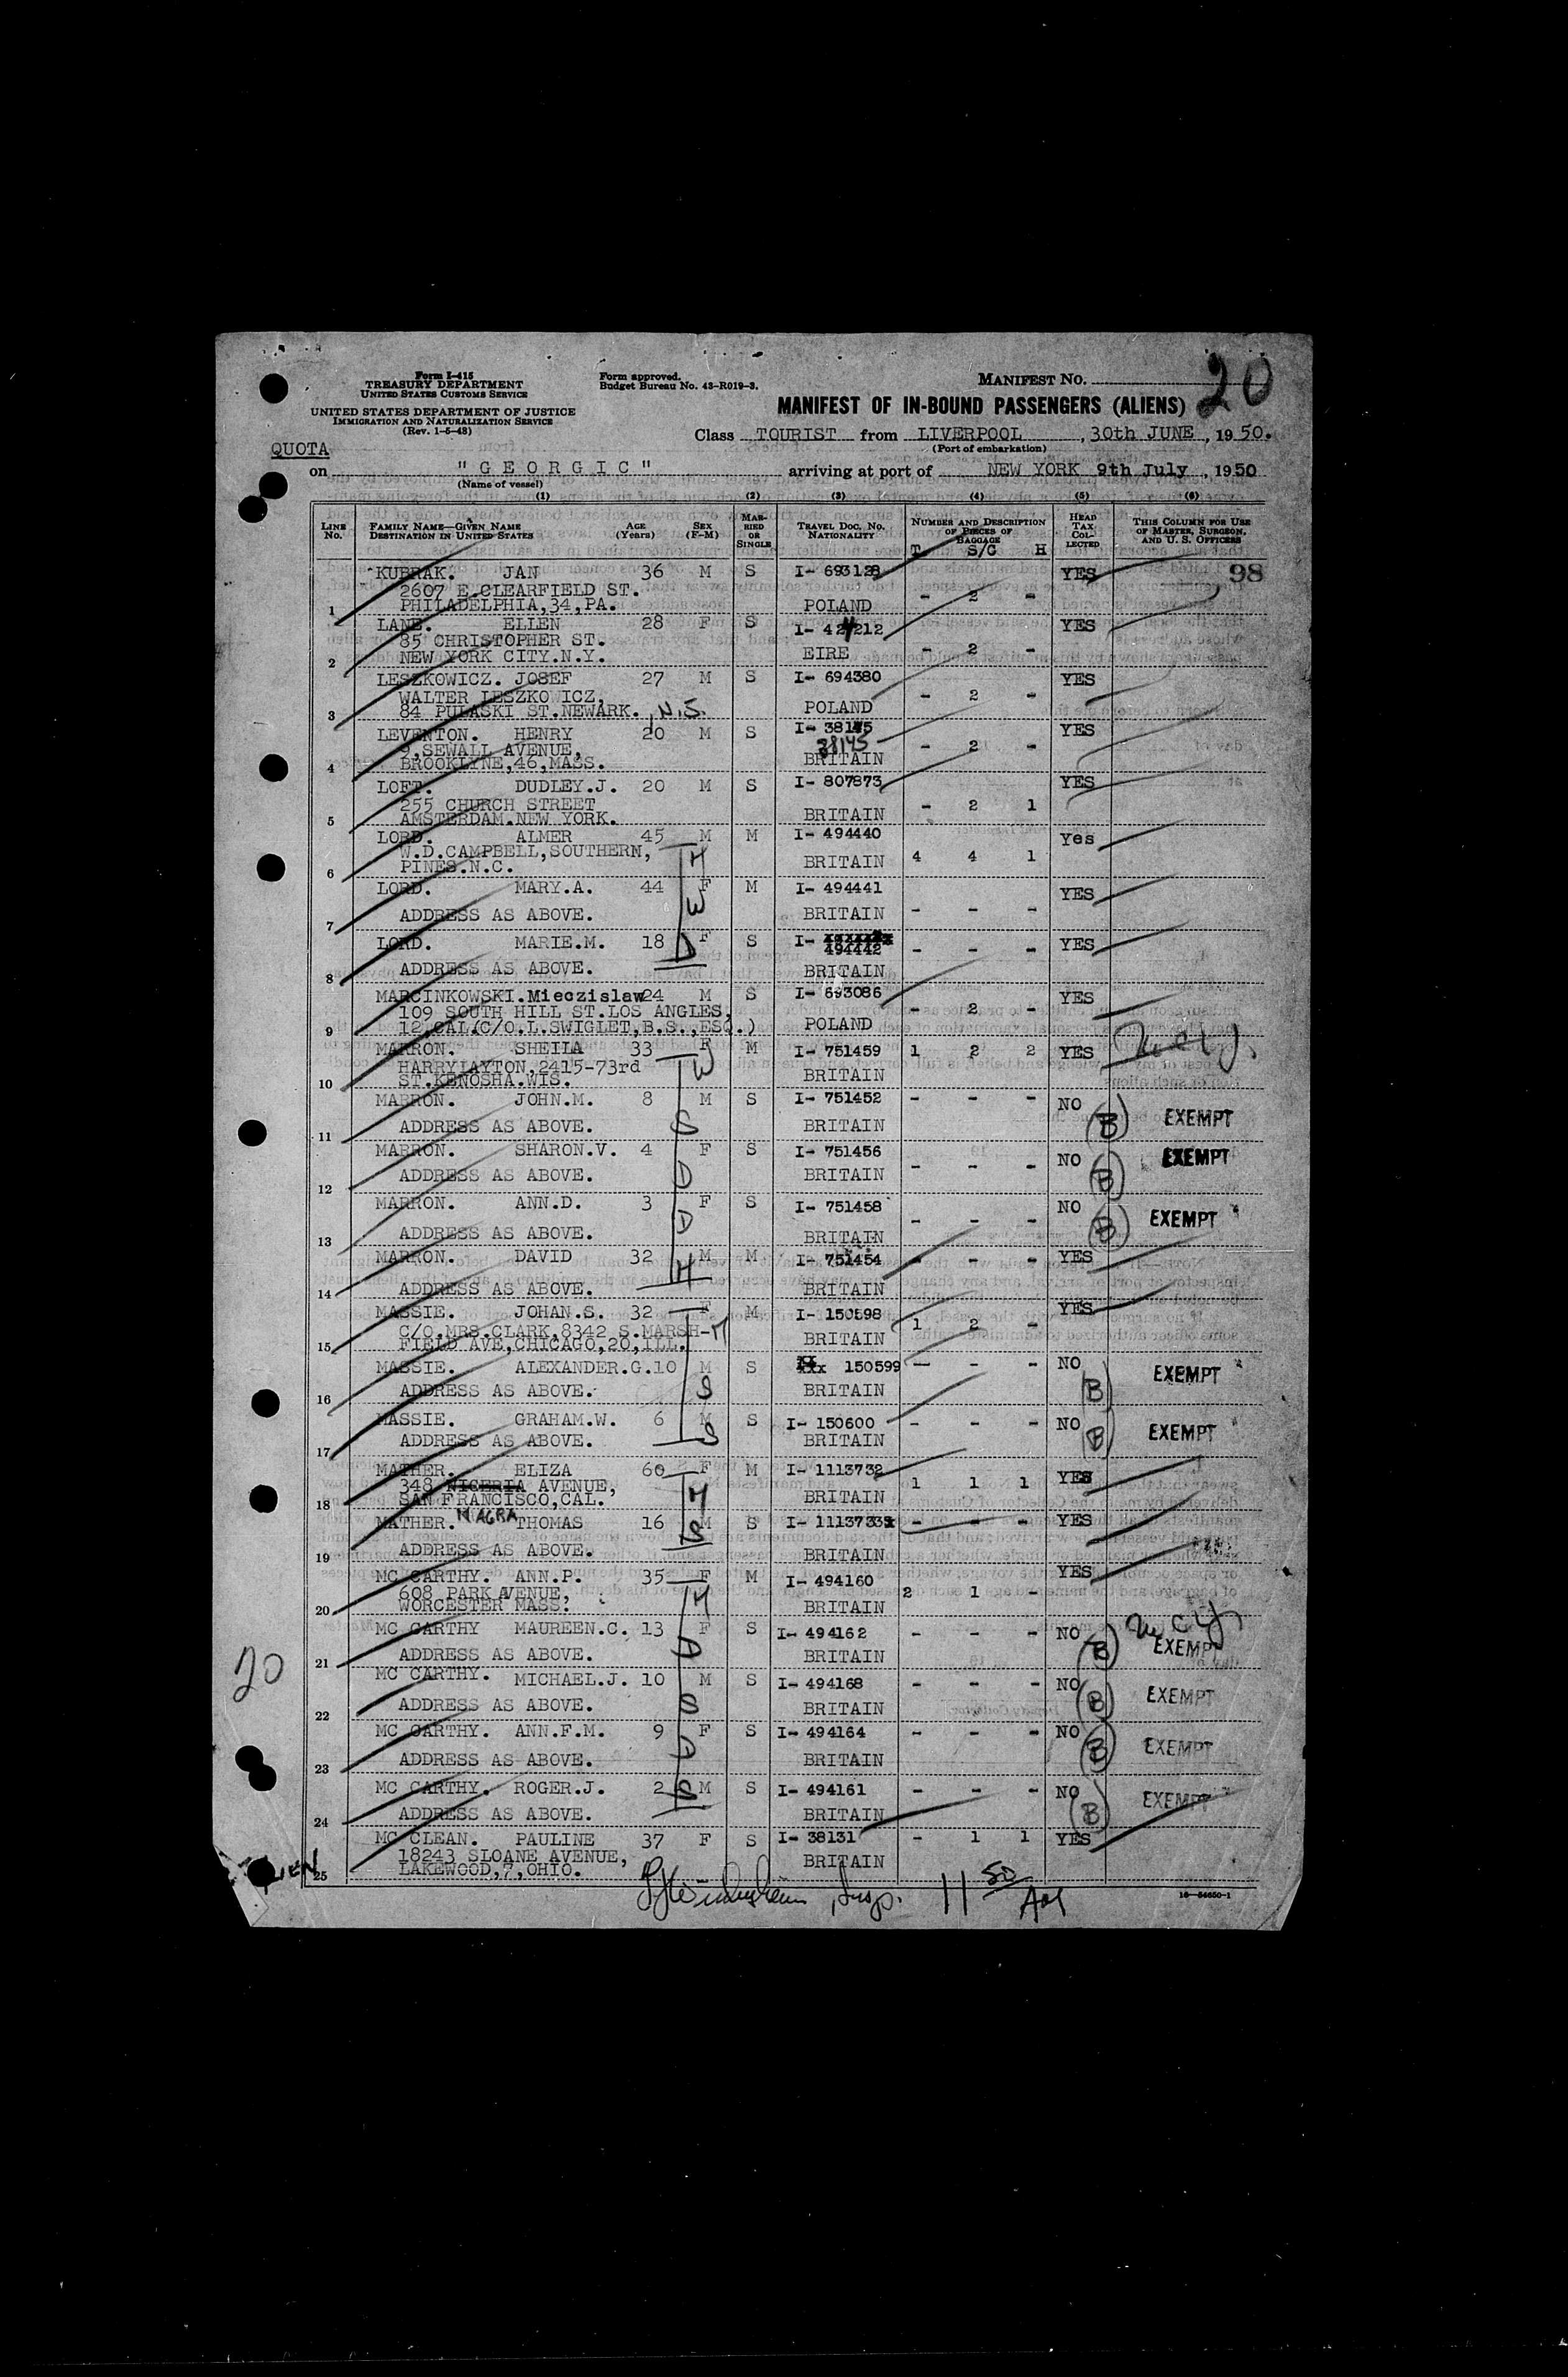 Form I-415
TREASURY DEPARTMENT
UNITED STATES CUSTOMS SERVICE
UNITED STATES DEPARTMENT OF JUSTICE
IMMIGRATION AND NATURALIZATION SERVICE
(Rev. 1-5-48)
Form approved.
Budget Bureau No. 43-R019-3.
MANIFEST NO. 20
MANIFEST OF IN-BOUND PASSENGERS (ALIENS)
Class TOURIST from LIVERPOOL, 30th JUNE, 1950.
(Port of embarkation)
QUOTA
on "GEORGIC" arriving at port of NEW YORK 9th July, 1950
(Name of vessel)
(1) (2) (3) (4) (5) (6)
LINE NO. FAMILY NAME—GIVEN NAME DESTINATION IN UNITED STATES AGE (Years) SEX (F-M) MARRIED OR SINGLE TRAVEL DOC. NO. NATIONALITY NUMBER AND DESCRIPTION OF PIECES OF BAGGAGE HEAD TAX COLLECTED THIS COLUMN FOR USE OF MASTER, SURGEON, AND U. S. OFFICERS
T S/C H
KUBRAK. JAN 36 M S I- 693128 - 2 - YES 98
2607 E.CLEARFIELD ST.
1 PHILADELPHIA,34,PA. POLAND
LANE. ELLEN 28 F S I- 424212 YES
85 CHRISTOPHER ST.
2 NEW YORK CITY.N.Y. EIRE - 2 -
LESZKOWICZ. JOSEF 27 M S I- 694380 YES
WALTER LESZKOWICZ, - 2 -
3 84 PULASKI ST.NEWARK. , N.J. POLAND
LEVENTON. HENRY 20 M S I- 38145 YES
9,SEWALL AVENUE, 38145 - 2 -
4 BROOKLYNE,46,MASS. BRITAIN
LOFT. DUDLEY.J. 20 M S I- 807873 YES
255 CHURCH STREET - 2 1
5 AMSTERDAM.NEW YORK. BRITAIN
LORD. ALMER 45 M M I- 494440 Yes
W.D.CAMPBELL,SOUTHERN, H
6 PINES.N.C. BRITAIN 4 4 1
LORD. MARY.A. 44 F M I- 494441 YES
7 ADDRESS AS ABOVE. W BRITAIN - - -
LORD. MARIE.M. 18 F S I- 494442 - - - YES
8 ADDRESS AS ABOVE. D BRITAIN
MARCINKOWSKI.Mieczislaw 24 M S I- 693086 YES
109 SOUTH HILL ST.LOS ANGLES, - 2 -
9 12,CAL.(C/O.L.SWIGLET,B.S.,ESQ.) POLAND
MARRON. SHEILA 33 F M I- 751459 1 2 2 YES
HARRY LAYTON,2415-73rd W
10 ST.KENOSHA.WIS. BRITAIN
MARRON. JOHN.M. 8 M S I- 751452 - - - NO
11 ADDRESS AS ABOVE. S BRITAIN B EXEMPT
MARRON. SHARON.V. 4 F S I- 751456 - - - NO EXEMPT
12 ADDRESS AS ABOVE. D BRITAIN B
MARRON. ANN.D. 3 F S I- 751458 - - - NO
13 ADDRESS AS ABOVE. D BRITAIN B EXEMPT
MARRON. DAVID 32 M M I- 751454 - - - YES
14 ADDRESS AS ABOVE. H BRITAIN
MASSIE. JOHAN.S. 32 F M I- 150598 1 2 - YES
C/O.MRS.CLARK,8342 S.MARSH- M
15 FIELD AVE,CHICAGO,20,ILL. BRITAIN
MASSIE. ALEXANDER.G. 10 M S 150599 - - - NO
16 ADDRESS AS ABOVE. S BRITAIN B EXEMPT
MASSIE. GRAHAM.W. 6 M S I- 150600 - - - NO
17 ADDRESS AS ABOVE. S BRITAIN B EXEMPT
MATHER. ELIZA 60 F M I- 1113732 1 1 1 YES
348 NIGERIA AVENUE, M
18 SAN FRANCISCO,CAL. BRITAIN
NIAGRA
MATHER. THOMAS 16 M S I- 1113733 - - - YES
19 ADDRESS AS ABOVE. S BRITAIN
MC CARTHY. ANN.P. 35 F M I- 494160 YES
608 PARK AVENUE, M 2 1 -
20 WORCESTER MASS. BRITAIN
MC CARTHY MAUREEN.C. 13 F S I- 494162 - - - NO
21 ADDRESS AS ABOVE. D BRITAIN B EXEMPT
MC CARTHY. MICHAEL.J. 10 M S I- 494168 - - - NO
22 ADDRESS AS ABOVE. S BRITAIN B EXEMPT
MC CARTHY. ANN.F.M. 9 F S I- 494164 - - - NO
23 ADDRESS AS ABOVE. D BRITAIN B EXEMPT
MC CARTHY. ROGER.J. 2 M S I- 494161 - - - NO
24 ADDRESS AS ABOVE. S BRITAIN B EXEMPT
MC CLEAN. PAULINE 37 F S I- 38131 - 1 1 YES
18243 SLOANE AVENUE,
25 LAKEWOOD,7,OHIO. BRITAIN
20
Insp. 11 50 AM
16—54650-1